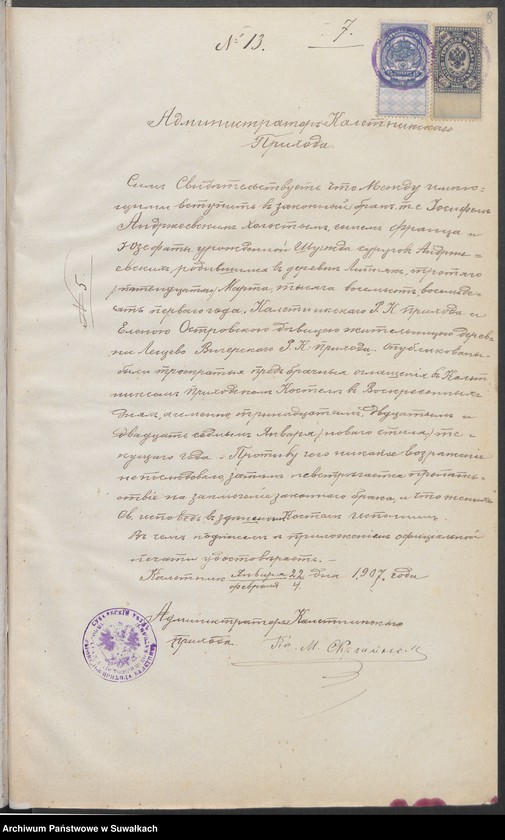 8
№ 13.
7.
Администраторъ Калетникскаго
Прихода
Симъ Свидѣтельствуетъ что Между имею-
щими вступить въ законный бракъ т. е. Іосифомъ
Андржеевскимъ Холостымъ, сыномъ Франца и
Юзефаты урожденной супруговъ Андрже-
евскихъ, родившимся въ деревнѣ третяго
Марта, тысяча восемьсотъ восемьде-
сятъ перваго года, Калетникскаго Р. К. прихода и
Еленою Островского бывшею жительницею дерев-
ни Лещево Вигерскаго Р. К. прихода. опубликованы
были троекратныя предбрачныя оглашенія въ Калет-
никскомъ Приходскомъ Костелѣ въ Воскресенныхъ
дняхъ, а именно: тринадцатымъ, двадцатымъ и
двадцать седьмымъ Января (новаго стиля) те-
кущаго года. Противу чего никакое возраженіе
не послѣдовало, затѣмъ не встрѣчается препят-
ствіе на заключеніе законнаго брака, и что женихъ
Св. исповѣдь въ Костелѣ исполнилъ.
Въ чемъ подписью и приложеніемъ оффиціальной
печати удостовѣряетъ. —
Калетникъ Января 22 / февраля 4 дня 1907 года
№ 5.
Администраторъ Калетникскаго
прихода Кс. М.
Archiwum Państwowe w Suwałkach